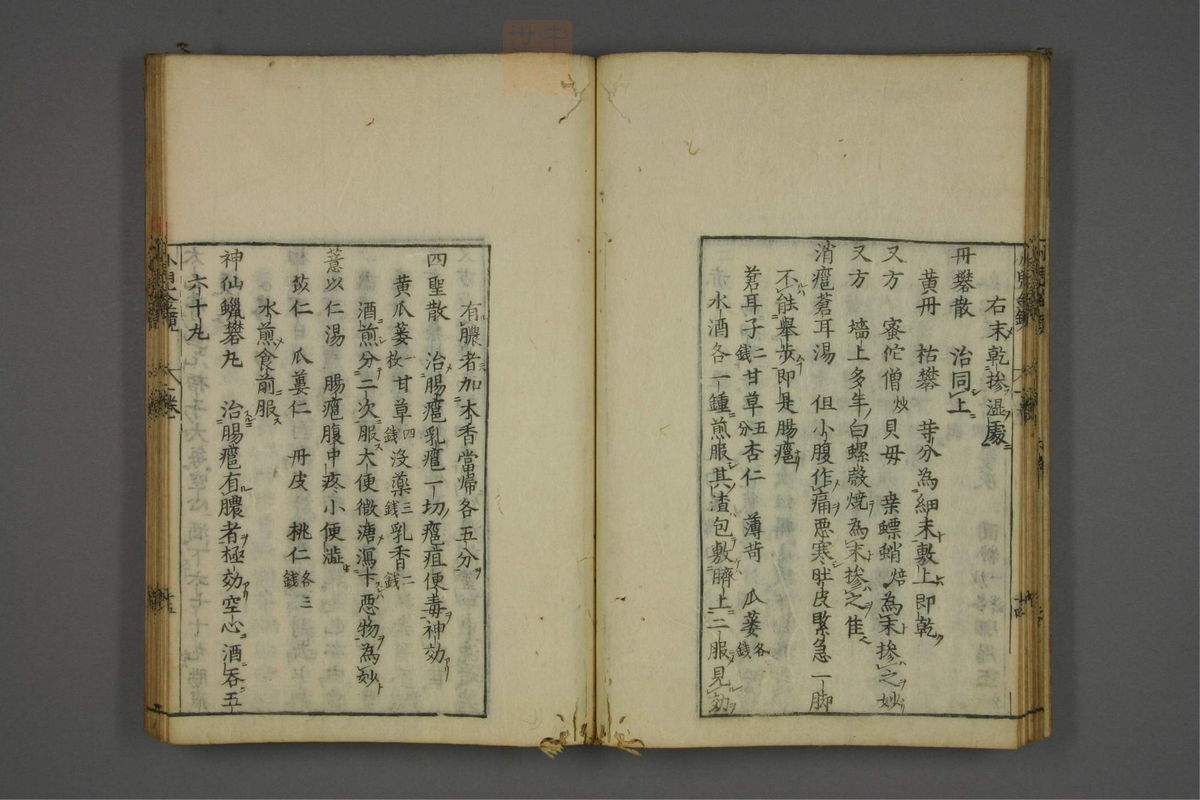 右末乾摻湿處
丹礬散　治同上
黄丹　枯礬　䓁分為細末敷上即乾
又方　蜜佗僧炒貝母　桒螵蛸焙為末摻之妙
又方　墻上多年白螺殻燒為末摻之佳
消癰蒼耳湯　但小腹作痛悪寒肚皮緊急一脚
不能舉歩即是腸癰
蒼耳子二錢甘草五分杏仁　薄苛　瓜蔞各錢
水酒各一鍾煎服其渣包敷臍上二服見効
有膿者加木香當㱕各五分
四聖散　治腸癰乳癰一切癰疽便毒神効
黄瓜蔞一枚甘草四錢沒藥三錢乳香二錢
酒煎分二次服大便微溏瀉下悪物為妙
薏苡仁湯　腸癰腹中疼小便澁
苡仁　瓜蔞仁　丹皮　桃仁各三錢
水煎食前服
神仙蠟礬丸　治腸癰有膿者極効空心酒吞五
六十丸